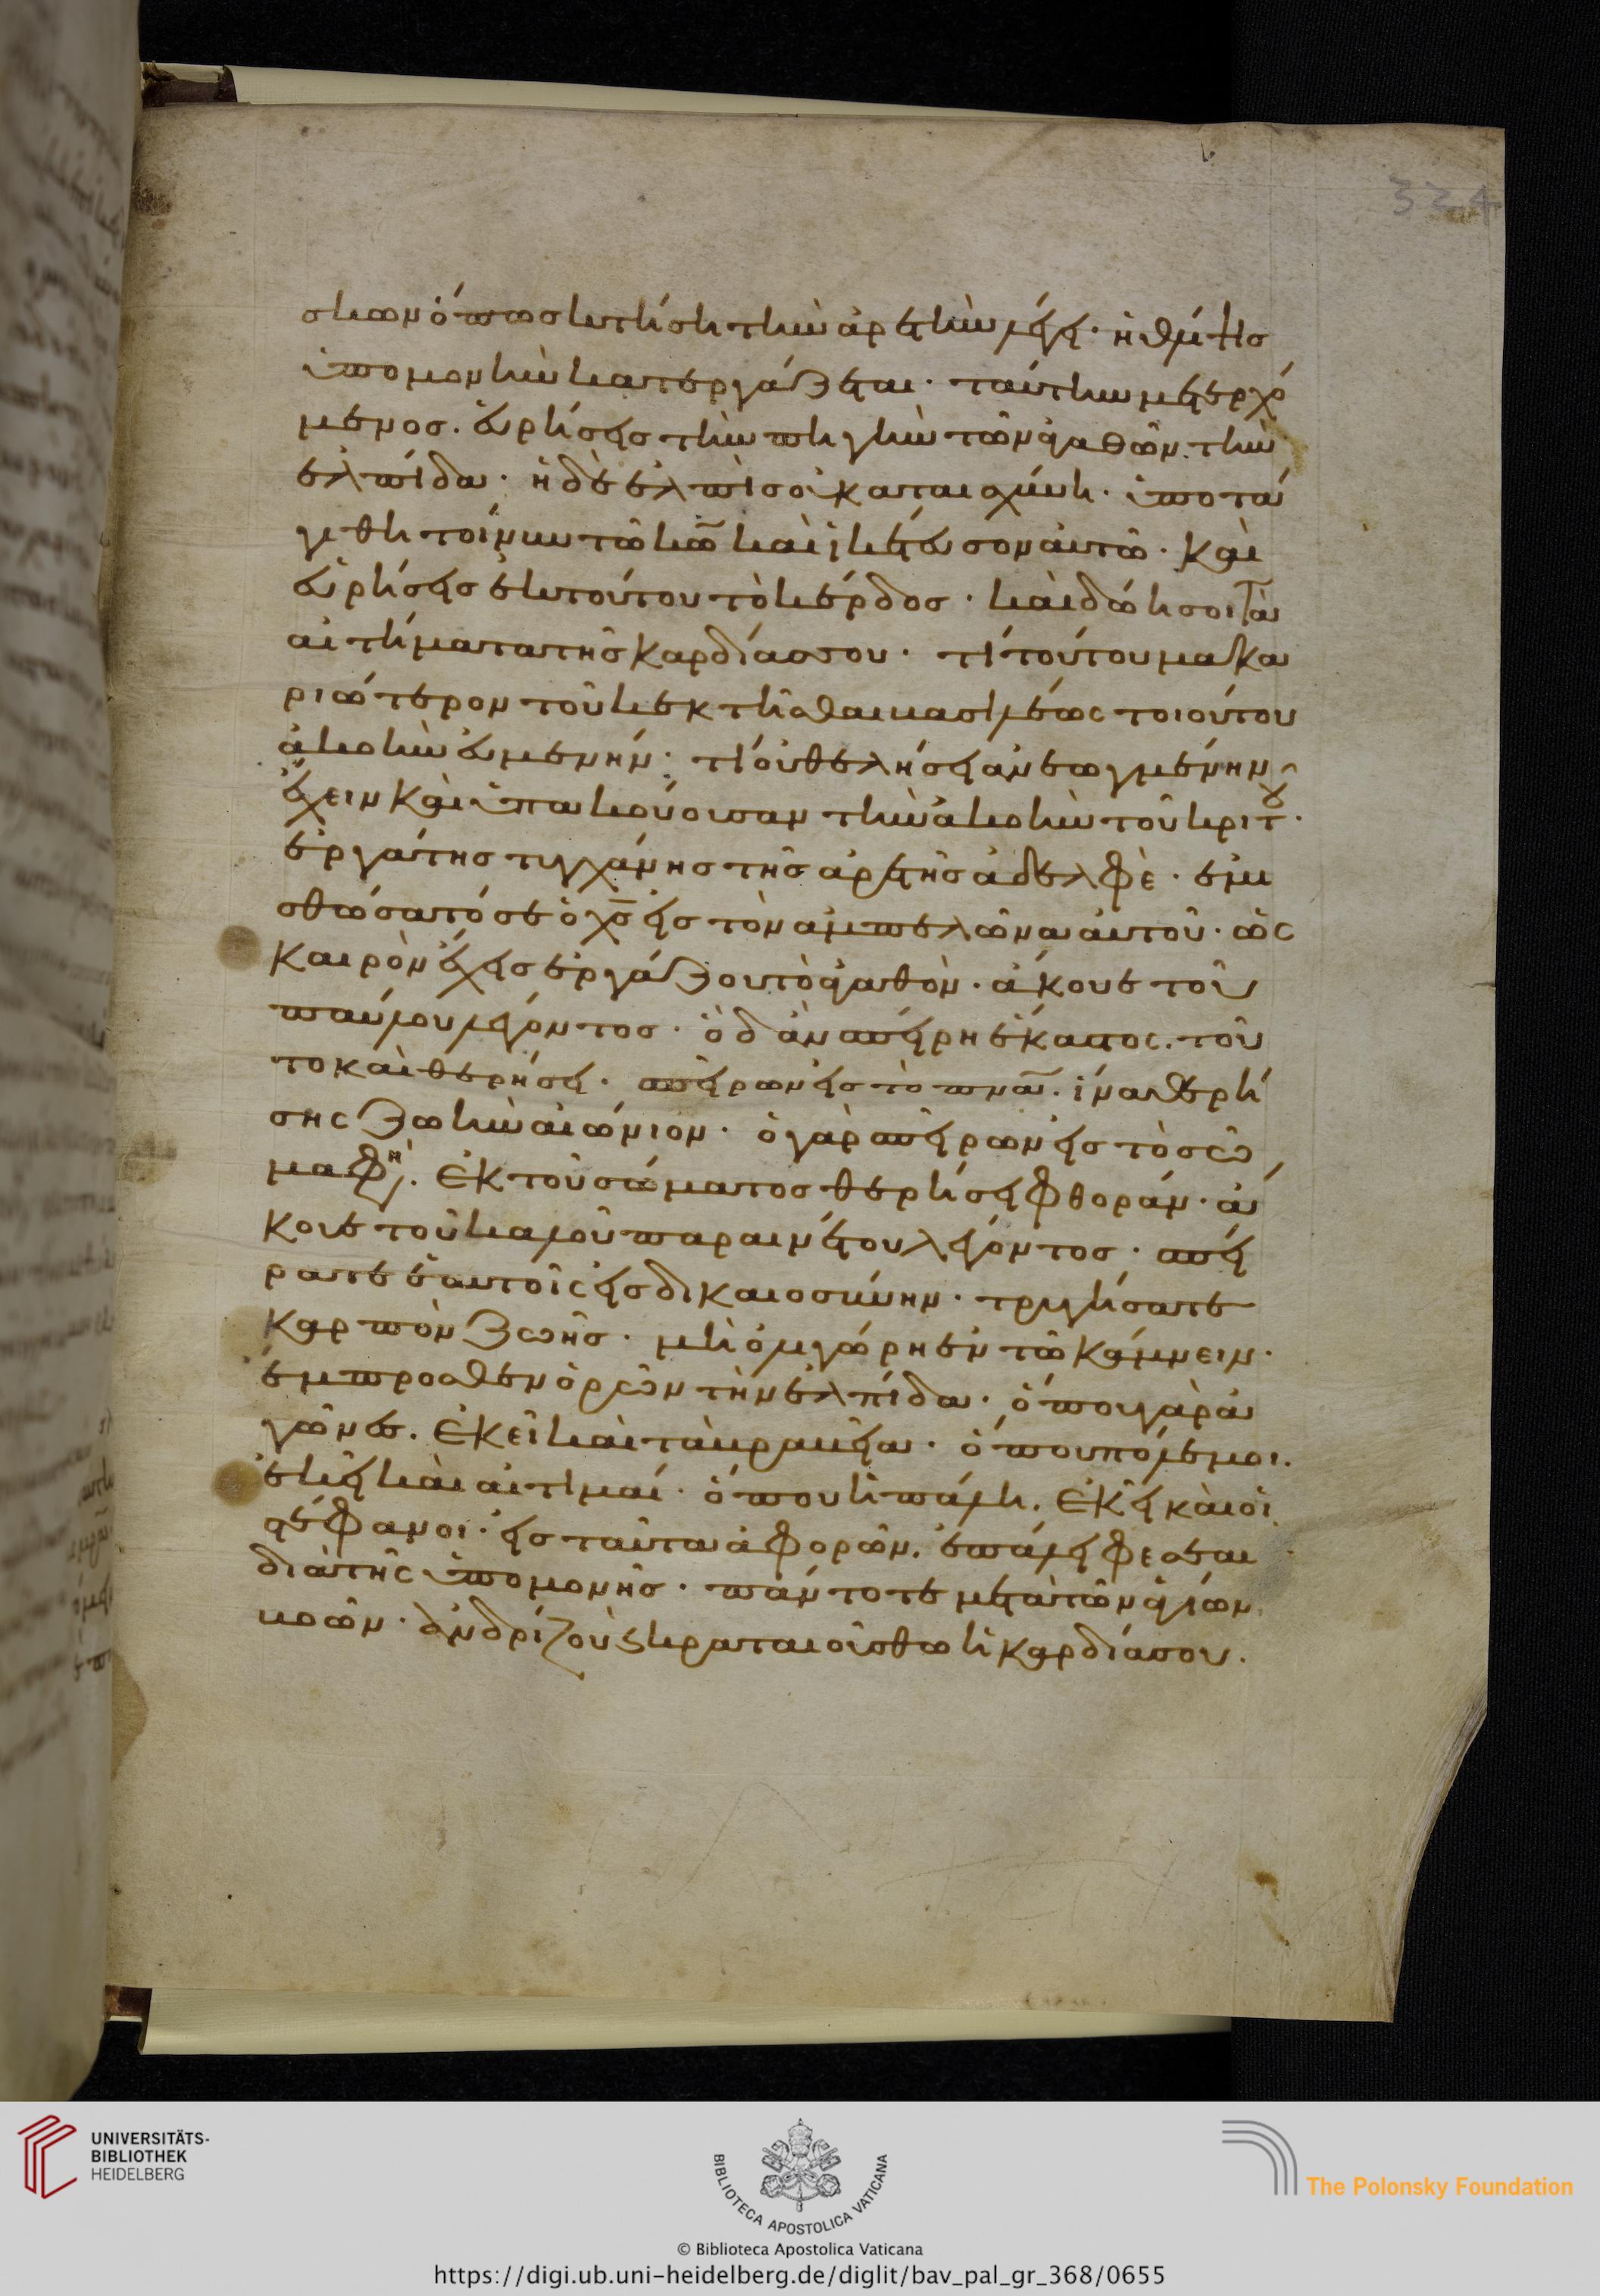 324
σκων ὅπως κτήσῃ τὴν ἀρετὴν λέγει· ἡ θλίψις
ὑπομονὴν κατεργάζεται· ταύτην μετερχό
μενος. εὑρήσεις τὴν πηγὴν τῶν ἀγαθῶν. τὴν
ἐλπίδα· ἡ δὲ ἐλπὶς οὐ καταισχύνη· ὑποτά
γηθι τοίνυν τῶ κω̅ καὶ ἱκέτευσον αὐτῶ· καὶ
εὑρήσεις ἐκ τούτου τὸ κέρδος· καὶ δώη σοι τὰ
αἰτήματα τῆς καρδίας σου· τί τούτου μακα
ριώτερον τοῦ κεκτῆσθαι βασιλέως τοιούτου
ἀκοὴν εὐμενήν· τί οὐ θελήσει ἀνεωγμένην
ἔχειν καὶ ὑπακούουσαν τὴν ἀκοὴν τοῦ κριτοῦ·
ἐργάτης τυγχάνης τῆς ἀρετῆς ἀδελφὲ· ἐμι
σθώσατό σε ὁ χς̅ εἰς τὸν ἀμπελῶνα αὐτοῦ· ὡς
καιρὸν ἔχεις ἐργάζου τὸ ἀγαθὸν· ἄκουε τοῦ
παύλου λέγοντος· ὃ δ' ἂν σπείρη ἕκαστος. τοῦ
το καὶ θερήσει· σπείρων εἰς τὸ πνα̅. ἵνα θερί
σης ζωὴν αἰώνιον· ὁ γὰρ σπείρων εἰς τὸ σῶ
μα φη. ἐκ τοῦ σώματος θερήσει φθοράν· ἄ
κουε τοῦ καλοῦ παραινέτου λέγοντος· σπεί
ρατε ἑαυτοῖς εἰς δικαιοσύνην· τρυγήσατε
καρπὸν ζωῆς· μὴ ὀλιγώρη ἐν τῶ κάμνειν·
ἔμπροσθεν ὁρῶν τὴν ἐλπίδα· ὅπου γὰρ ἀ
γῶνες. ἐκεῖ καὶ τὰ βραβεῖα· ὅπου πόλεμοι.
ἐκεῖ καὶ αἱ τιμαί· ὅπου ἡ πάλη. ἐκεῖ καὶ οἱ
στέφανοι· εἰς ταῦτα ἀφορῶν. ἐπάλειφε σαι
διὰ τῆς ὑπομονῆς· πάντοτε μετὰ τῶν ἁγίων
βοῶν· ἀνδρίζου καὶ κραταιούσθω ἡ καρδία σου.
UNIVERSITÄTS-
BIBLIOTHEK
HEIDELBERG
BIBLIOTECA APOSTOLICA VATICANA
The Polonsky Foundation
© Biblioteca Apostolica Vaticana
https://digi.ub.uni-heidelberg.de/diglit/bav_pal_gr_368/0655